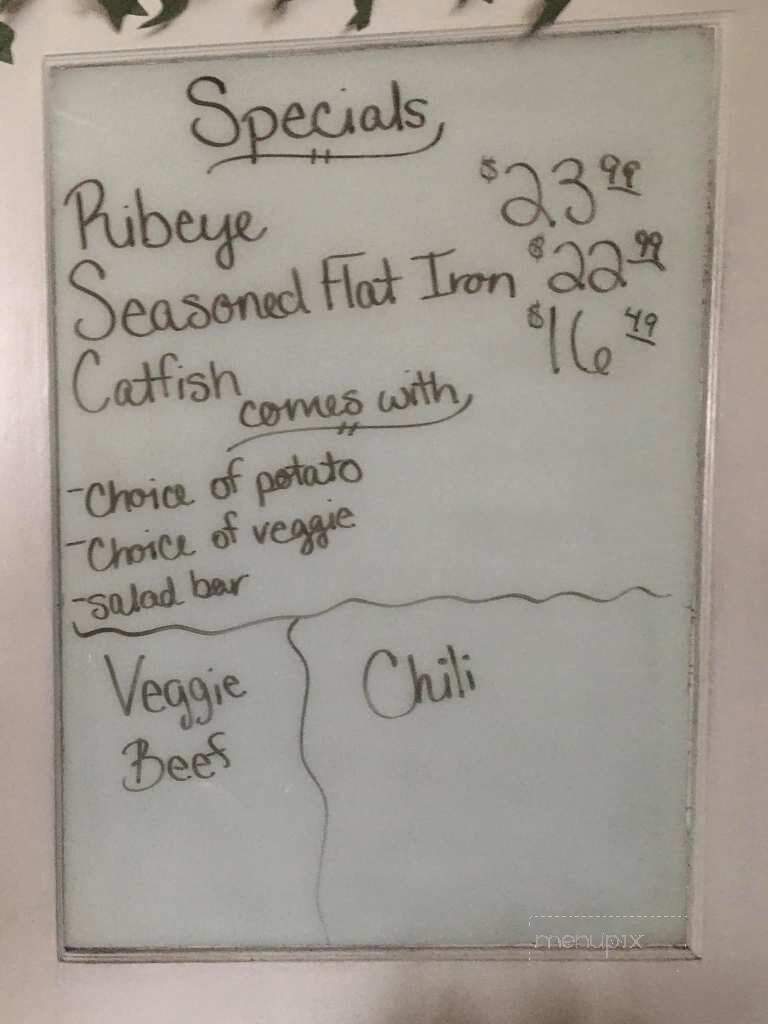 Specials
Ribeye $23.99
Seasoned Flat Iron $22.99
Catfish $16.49
comes with
-Choice of potato
-Choice of veggie
-salad bar
Veggie
Beef
Chili
menupix